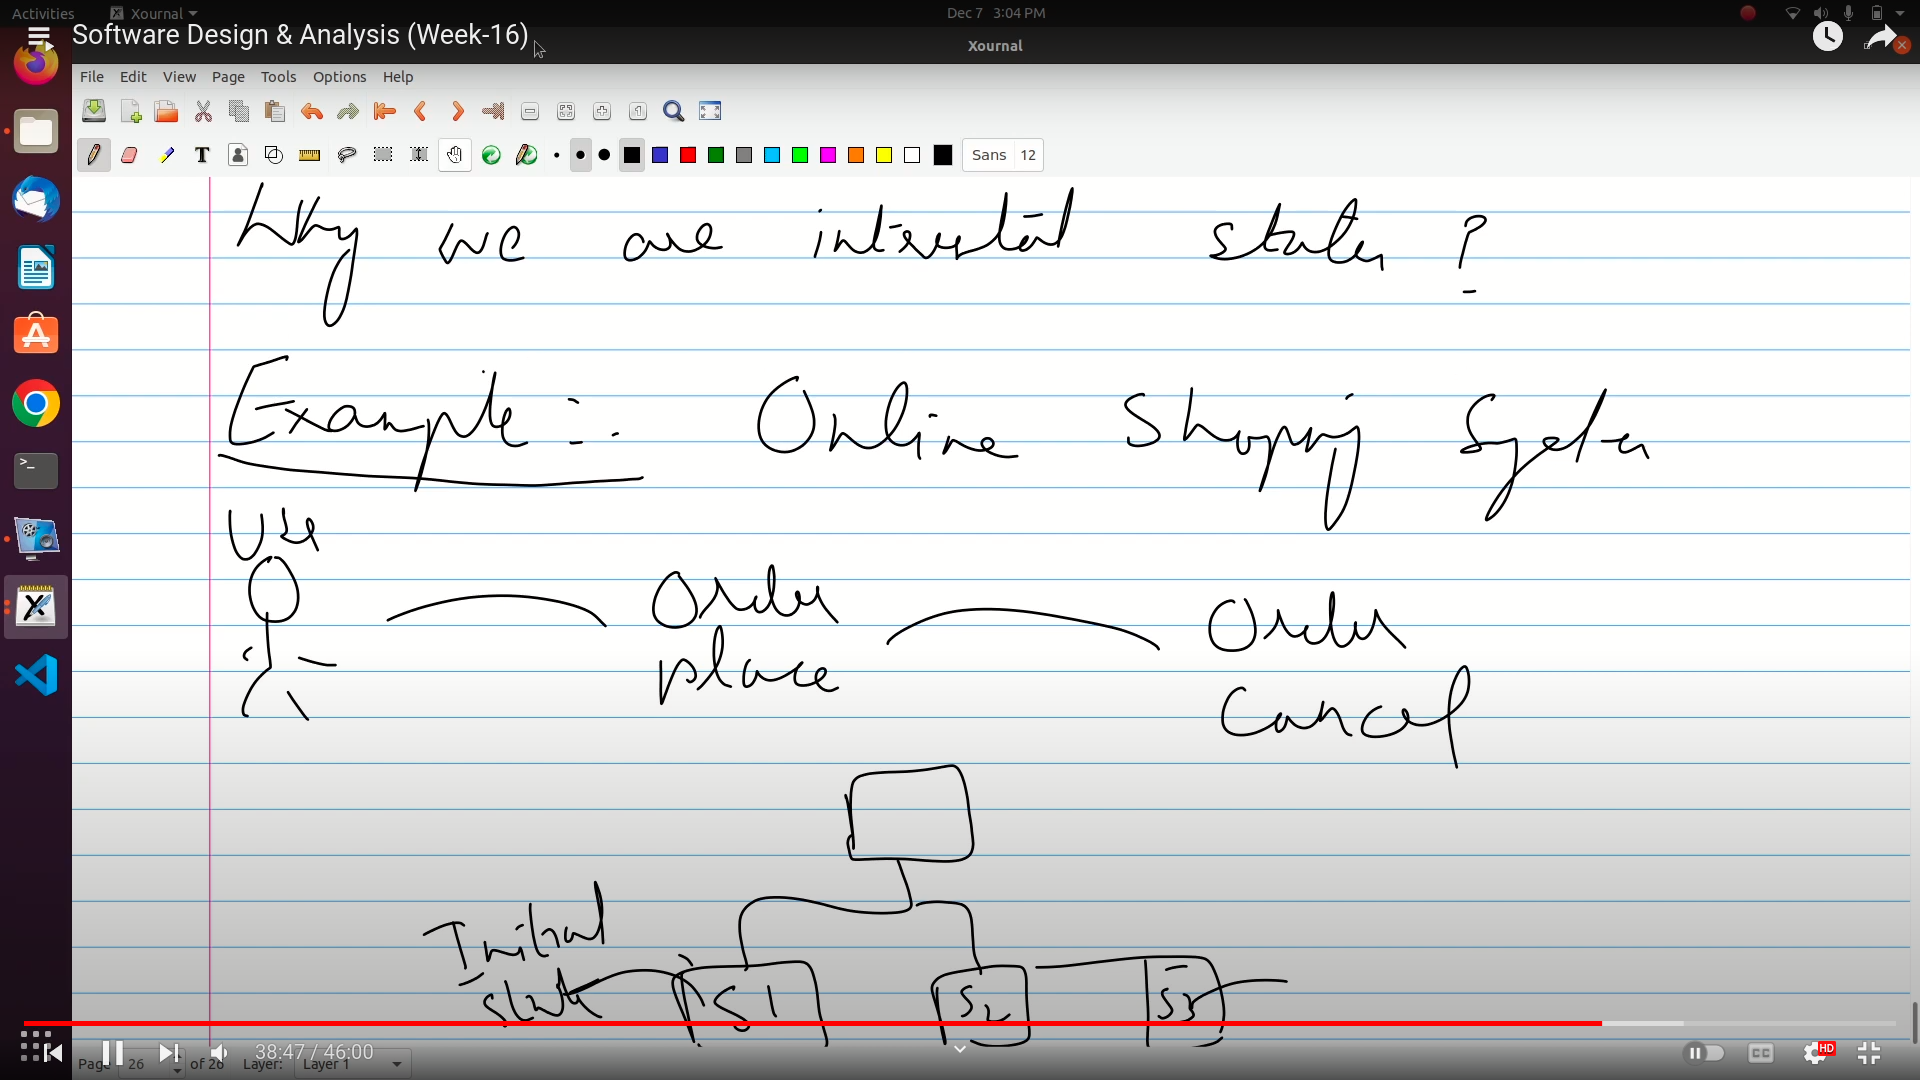 Activities Xournal Dec 7 3:04 PM
Software Design & Analysis (Week-16)
Xournal
File Edit View Page Tools Options Help
Sans 12
Why we are intrested states ?
Example :- Online Shopping System
User
Order Order
place Cancel
Initial
state S1 S2 S3
38:47 / 46:00
Page 26 of 26 Layer: Layer 1
CC HD